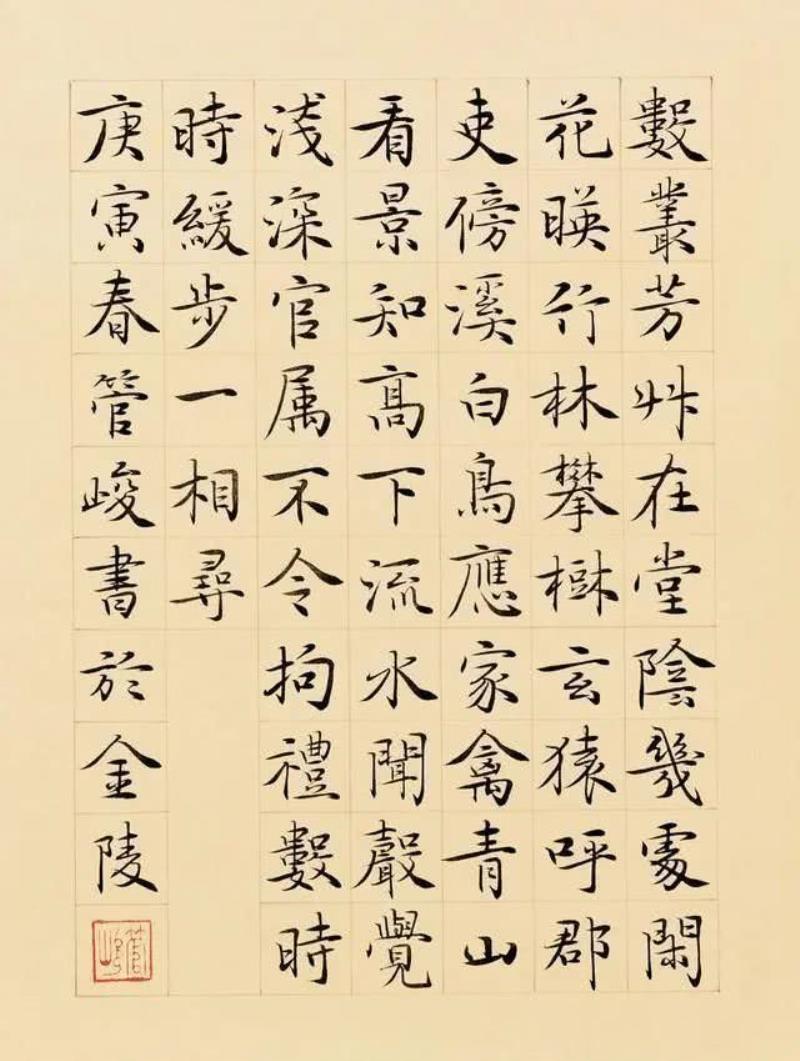 數叢芳艸在堂陰幾處閑
花暎竹林攀樹玄猿呼郡
吏傍溪白鳥應家禽青山
看景知高下流水聞聲覺
浅深官属不令拘禮數時
時緩步一相尋
庚寅春管峻書於金陵
管峻